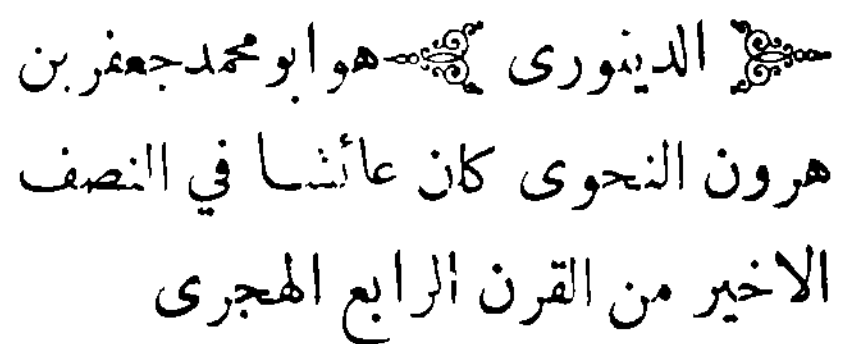 الدينورى هو ابو محمد جعفر بن
هرون النحوى كان عائشا في النصف
الاخير من القرن الرابع الهجرى